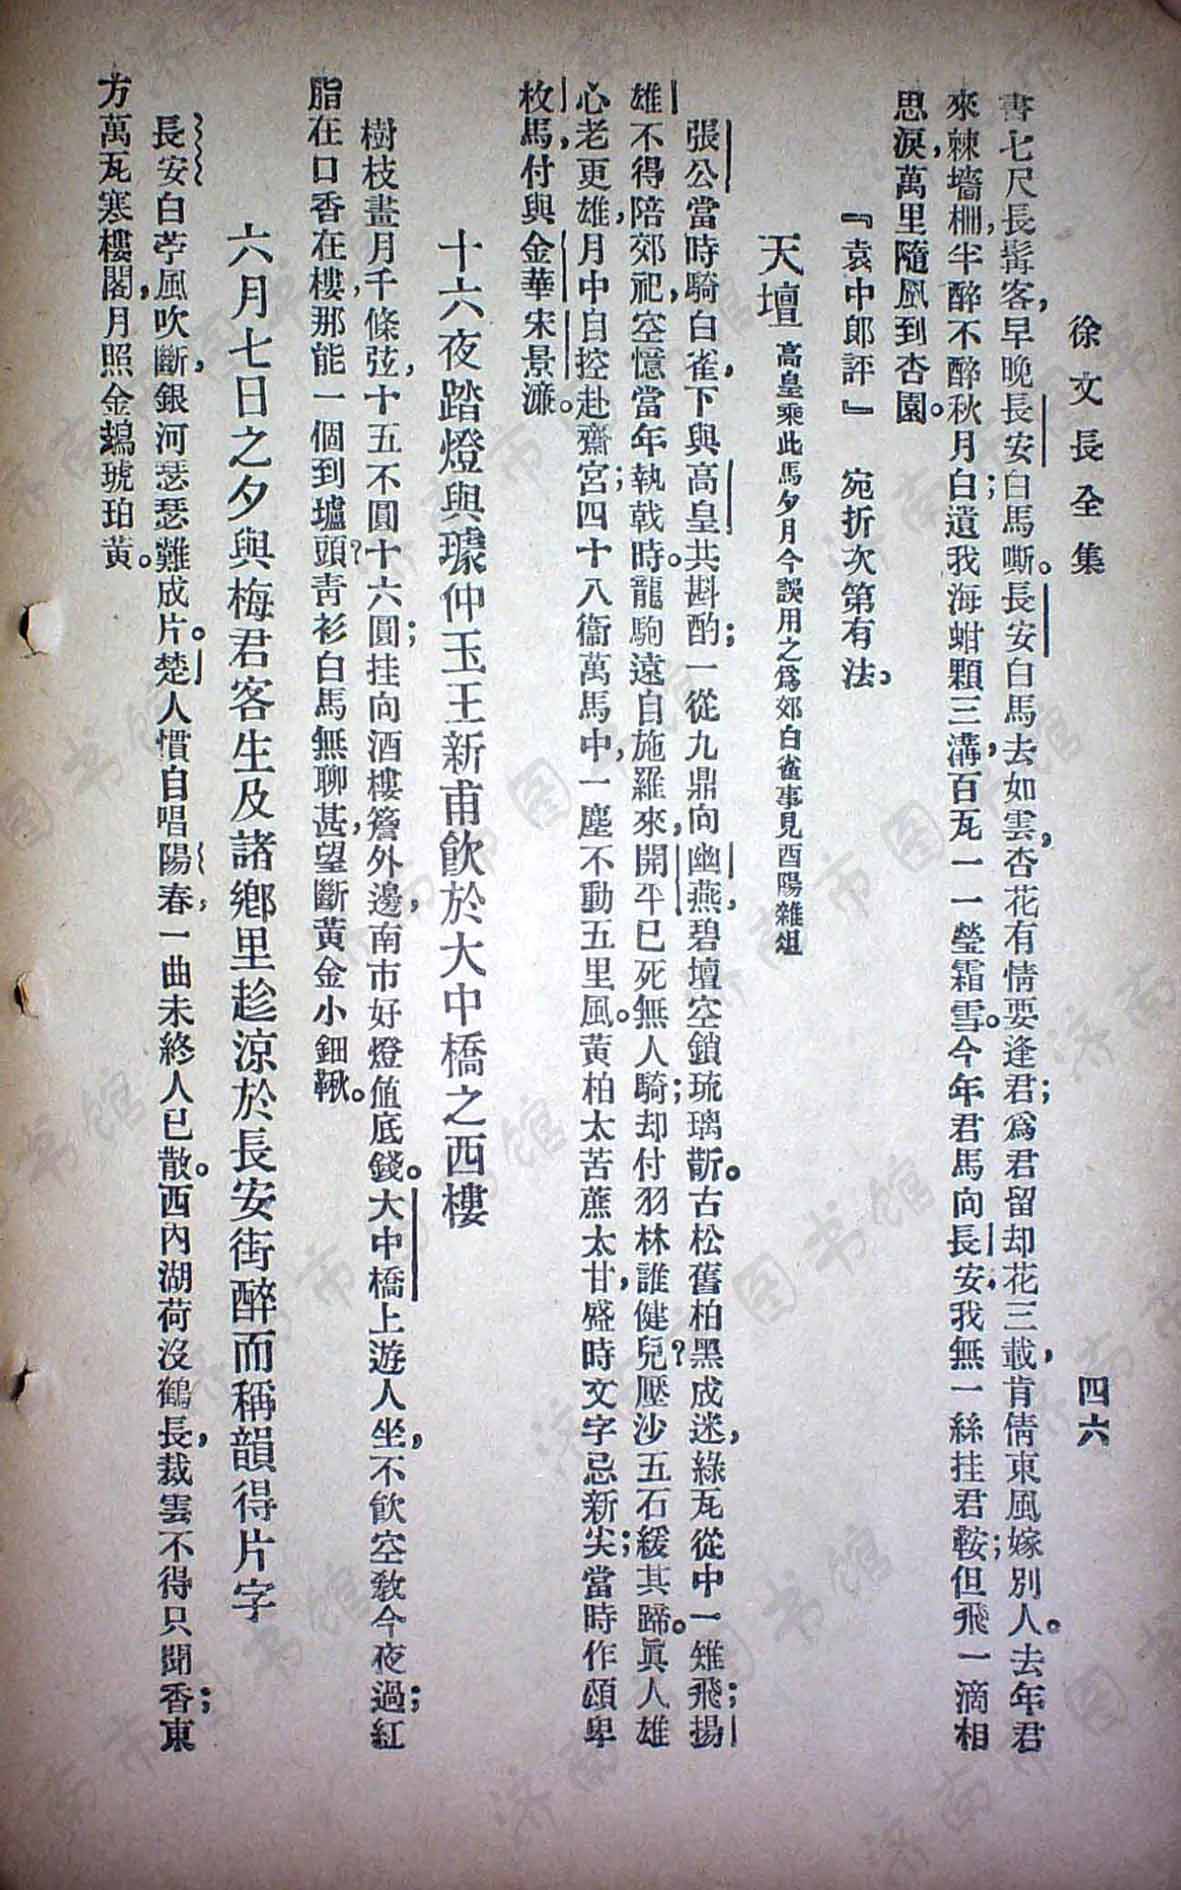 徐文長全集
四六
書七尺長髯客，早晚長安白馬嘶。長安白馬去如雲，杏花有情要逢君；爲君留却花三載，肯倩東風嫁別人。去年君
來棘墻柵，半醉不醉秋月白；遺我海蚶顆三溝，百瓦一一瑩霜雪。今年君馬向長安，我無一絲挂君鞍；但飛一滴相
思淚，萬里隨風到杏園。
『袁中郎評』　宛折次第有法。
天壇 高皇乘此馬夕月今誤用之爲郊白雀事見酉陽雜俎
張公當時騎白雀，下與高皇共斟酌；一從九鼎向幽燕，碧壇空鎖琉璃斲。古松舊柏黑成迷，綠瓦從中一雉飛；揚
雄不得陪郊祀，空憶當年執戟時。龍駒遠自施羅來，開平已死無人騎；却付羽林誰健兒？壓沙五石緩其蹄。眞人雄
心老更雄，月中自控赴齋宮；四十八衞萬馬中，一塵不動五里風。黃柏太苦蔗太甘，盛時文字忌新尖；當時作頌卑
枚馬，付與金華宋景濂。
十六夜踏燈與璩仲玉王新甫飮於大中橋之西樓
樹枝畫月千條弦，十五不圓十六圓；挂向酒樓簷外邊，南市好燈値底錢。大中橋上遊人坐，不飮空敎今夜過；紅
脂在口香在樓，那能一個到壚頭？靑衫白馬無聊甚，望斷黃金小鈿鞦。
六月七日之夕與梅君客生及諸鄉里趁涼於長安街醉而稱韻得片字
長安白苧風吹斷，銀河瑟瑟難成片。楚人慣自唱陽春，一曲未終人已散。西內湖荷沒鶴長，裁雲不得只聞香；東
方萬瓦寒樓閣，月照金鵶琥珀黃。